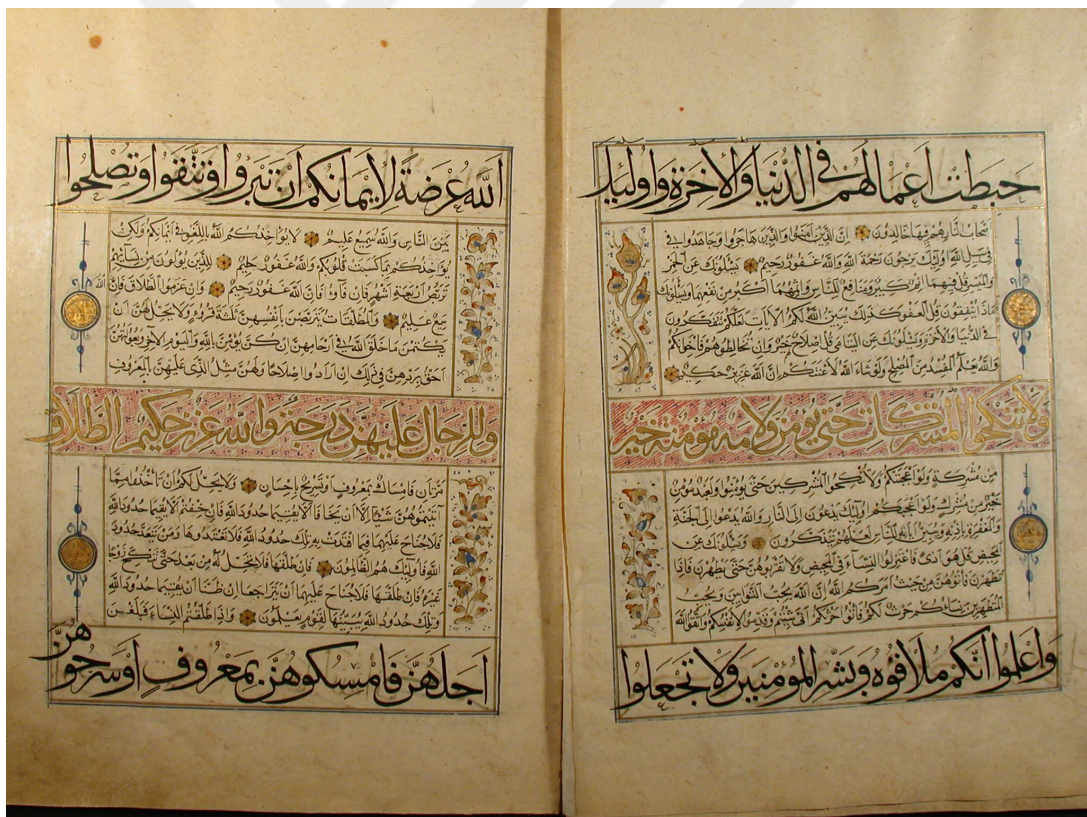 حبطت اعمالهم في الدنيا والاخرة واوليك
صحاب النار هم فيها خالدون ان الذين امنوا والذين هاجروا وجاهدوا في
سبيل الله اوليك يرجون رحمة الله والله غفور رحيم يسئلونك عن الخمر
والميسر قل فيهما اثم كبير ومنافع للناس واثمهما اكبر من نفعهما ويسئلونك
ماذا ينفقون قل العفو كذلك يبين الله لكم الايات لعلكم تتفكرون
في الدنيا والاخرة ويسئلونك عن اليتامى قل اصلاح لهم خير وان تخالطوهم فاخوانكم
والله يعلم المفسد من المصلح ولو شاء الله لاعنتكم ان الله عزيز حكيم
ولا تنكحوا المشركات حتى يؤمن ولامة مؤمنة خير
من مشركة ولو اعجبتكم ولا تنكحوا المشركين حتى يؤمنوا ولعبد مؤمن
خير من مشرك ولو اعجبكم اوليك يدعون الى النار والله يدعوا الى الجنة
والمغفرة باذنه ويبين اياته للناس لعلهم يتذكرون ويسئلونك عن
المحيض قل هو اذى فاعتزلوا النساء في المحيض ولا تقربوهن حتى يطهرن فاذا
تطهرن فاتوهن من حيث امركم الله ان الله يحب التوابين ويحب
المتطهرين نساؤكم حرث لكم فاتوا حرثكم انى شئتم وقدموا لانفسكم واتقوا الله
واعلموا انكم ملاقوه وبشر المؤمنين ولا تجعلوا
الله عرضة لايمانكم ان تبروا وتتقوا وتصلحوا
بين الناس والله سميع عليم لا يؤاخذكم الله باللغو في ايمانكم ولكن
يؤاخذكم بما كسبت قلوبكم والله غفور حليم للذين يؤلون من نسائهم
تربص اربعة اشهر فان فاءوا فان الله غفور رحيم وان عزموا الطلاق فان الله
سميع عليم والمطلقات يتربصن بانفسهن ثلثة قروء ولا يحل لهن ان
يكتمن ما خلق الله في ارحامهن ان كن يؤمن بالله واليوم الاخر وبعولتهن
احق بردهن في ذلك ان ارادوا اصلاحا ولهن مثل الذي عليهن بالمعروف
وللرجال عليهن درجة والله عزيز حكيم الطلاق
مرتان فامساك بمعروف او تسريح باحسان ولا يحل لكم ان تاخذوا مما
آتيتموهن شيئا الا ان يخافا الا يقيما حدود الله فان خفتم الا يقيما حدود الله
فلا جناح عليهما فيما افتدت به تلك حدود الله فلا تعتدوها ومن يتعد حدود
الله فاوليك هم الظالمون فان طلقها فلا تحل له من بعد حتى تنكح زوجا
غيره فان طلقها فلا جناح عليهما ان يتراجعا ان ظنا ان يقيما حدود الله
وتلك حدود الله يبينها لقوم يعلمون واذا طلقتم النساء فبلغن
اجلهن فامسكوهن بمعروف او سرحوهن